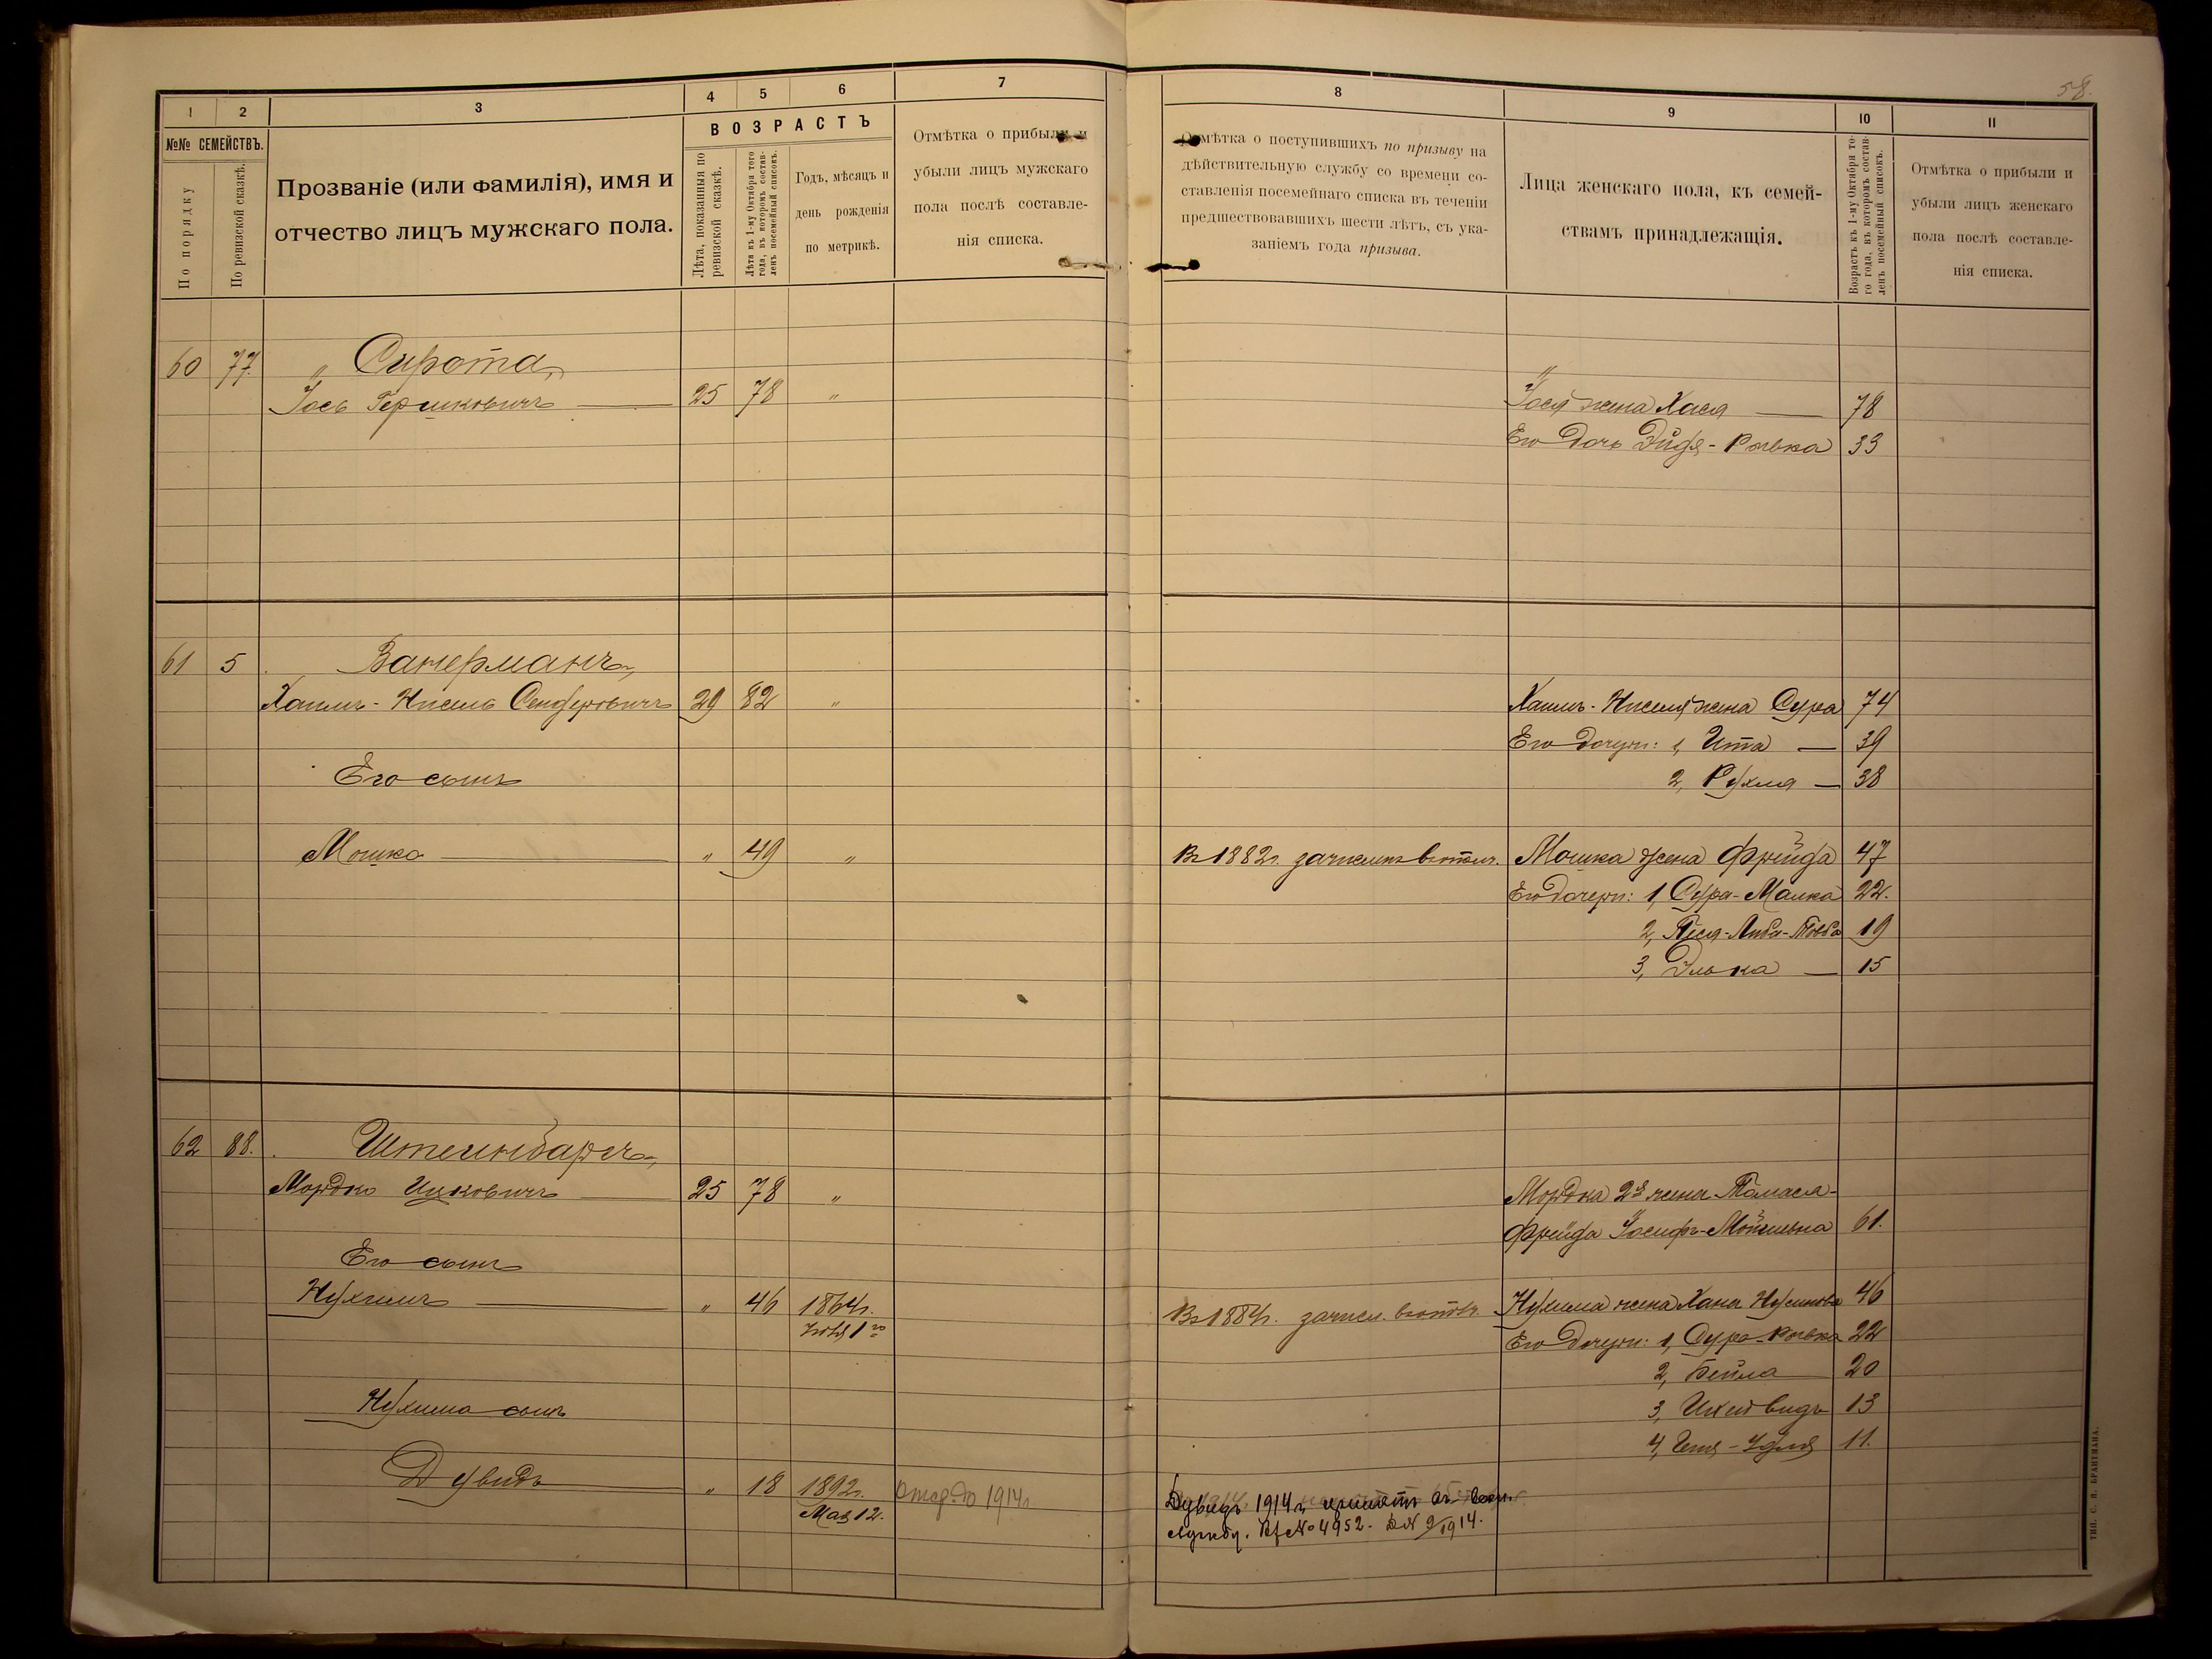 58.
1 2 3 4 5 6 7
№№ СЕМЕЙСТВЪ.
По порядку
По ревизской сказкѣ.
Прозваніе (или фамилія), имя и
отчество лицъ мужскаго пола.
ВОЗРАСТЪ
Лѣта, показанныя по
ревизской сказкѣ.
Лѣта къ 1-му Октября того
года, въ которомъ состав-
ленъ посемейный списокъ.
Годъ, мѣсяцъ и
день рожденія
по метрикѣ.
Отмѣтка о прибыли и
убыли лицъ мужскаго
пола послѣ составле-
нія списка.
60 77. " Сирота,
Іось Гершковичъ — 25 78 "
61 5 . Ванерманъ,
Хаимъ-Нисель Сендеровичъ 29 82 "
Его сынъ
Мошко — " 49 "
62 88. . Штеинбаргъ,
Мордко Ицковичъ — 25 78 "
Его сынъ
Нухимъ — " 46 1864г.
1го
Нухима сынъ
Дувидъ — " 18 1892г. отср. до 1914г
Мая 12.
8 9 10 11
Отмѣтка о поступившихъ по призыву на
дѣйствительную службу со времени со-
ставленія посемейнаго списка въ теченіи
предшествовавшихъ шести лѣтъ, съ ука-
заніемъ года призыва.
Лица женскаго пола, къ семей-
ствамъ принадлежащія.
Возрастъ къ 1-му Октября то-
го года, въ которомъ состав-
ленъ посемейный списокъ.
Отмѣтка о прибыли и
убыли лицъ женскаго
пола послѣ составле-
нія списка.
Іося жена Хася — 78
Его дочь Эйдя-Ривка 33
Хаимъ-Ниселя жена Сура 74
Его дочери: 1, Ита — 39
2, Рухля — 38
Въ 1882г. зачисленъ въ ополч. Мошка жена Фрейда 47
Его дочери: 1, Сура-Малка 22.
2, Песя-Либа-Товба 19
3, Элька — 15
Мордка 2я жена Томася-
Фрейда Іосифъ-Мойшевна 61.
Въ 1884г. зачисл. въ ополч. Нухима жена Хана Нусимова 46
Его дочери: 1, Сура-Ривка 22
2, Бейла 20
3, Ихевидъ 13
4, 11.
Дувидъ 1914г, принятъ въ воен.
службу. № 4952. 9/19 14.
ТИП. С. Я. БРАНТМАНА.